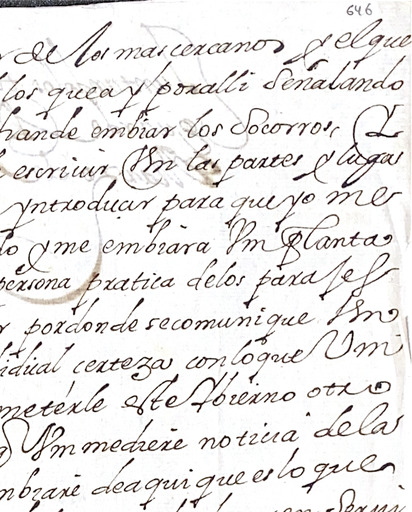 646
de los mas cercanos y el que
los que ay por alli señalando
hande embiar los socorros, Y
escriuir Vm las partes y lugar
yntroduçir para que yo me
y me embiara Vm planta
persona pratica de los parajes
por donde se comunique Vm
certeza con lo que Vm
meterle este gobierno otro
Vm me diere noticia de las
embiare de aqui que es lo que